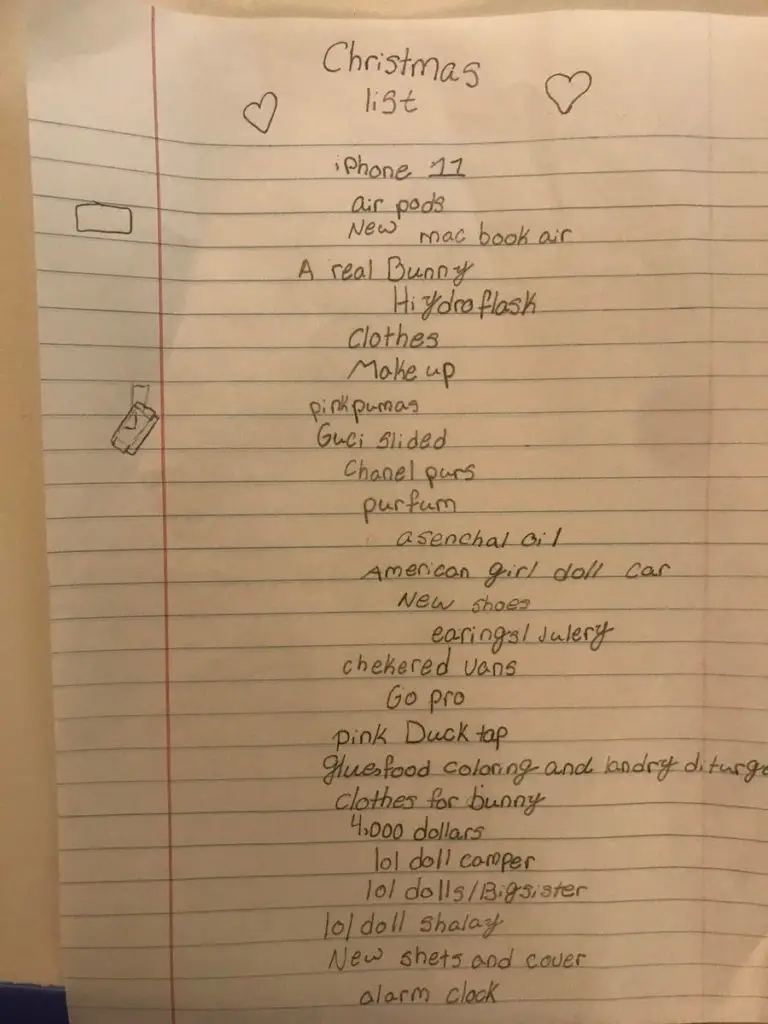 Christmas
list
iPhone 11
air pods
New mac book air
A real Bunny
Hiydroflask
Clothes
Make up
pinkpumas
Guci slided
Chanel purs
purfum
asenchal oil
American girl doll car
New shoes
earings/Julery
chekered vans
Go pro
pink Duck tap
glue,food coloring and landry diturge
Clothes for bunny
4,000 dollars
lol doll camper
lol dolls/Bigsister
lol doll shalay
New shets and cover
alarm clock